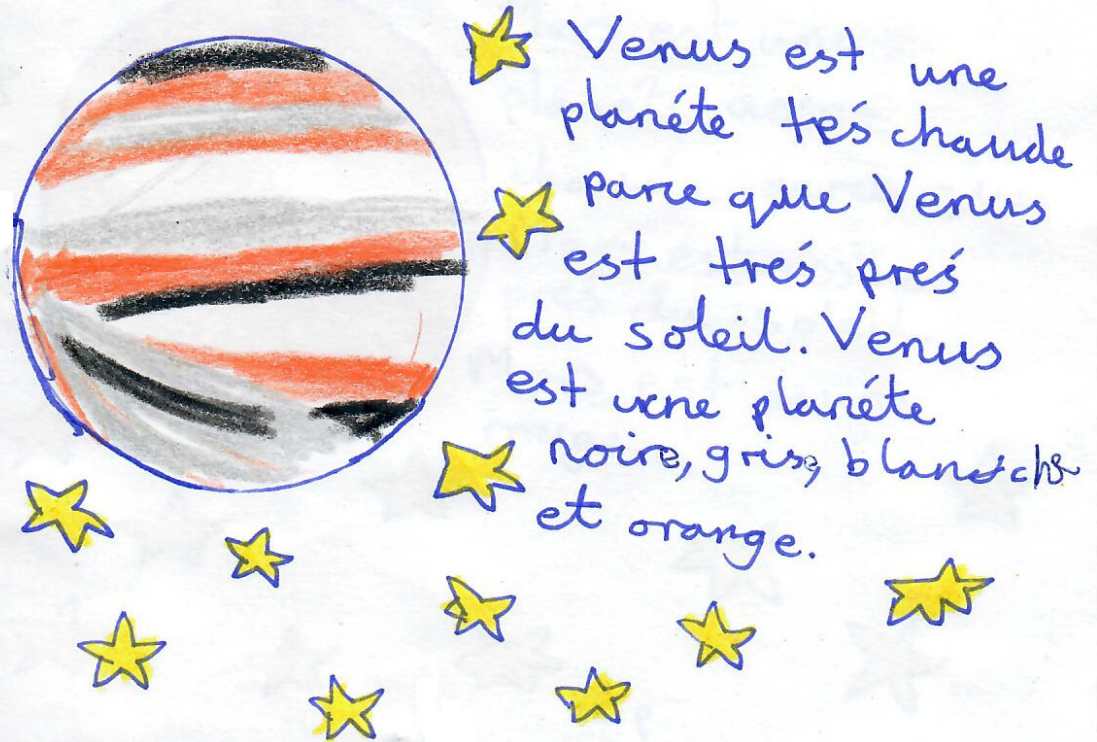 Venus est une
planéte trés chaude
parce que Venus
est trés prés
du soleil. Venus
est une planéte
noire, grise, blanche
et orange.